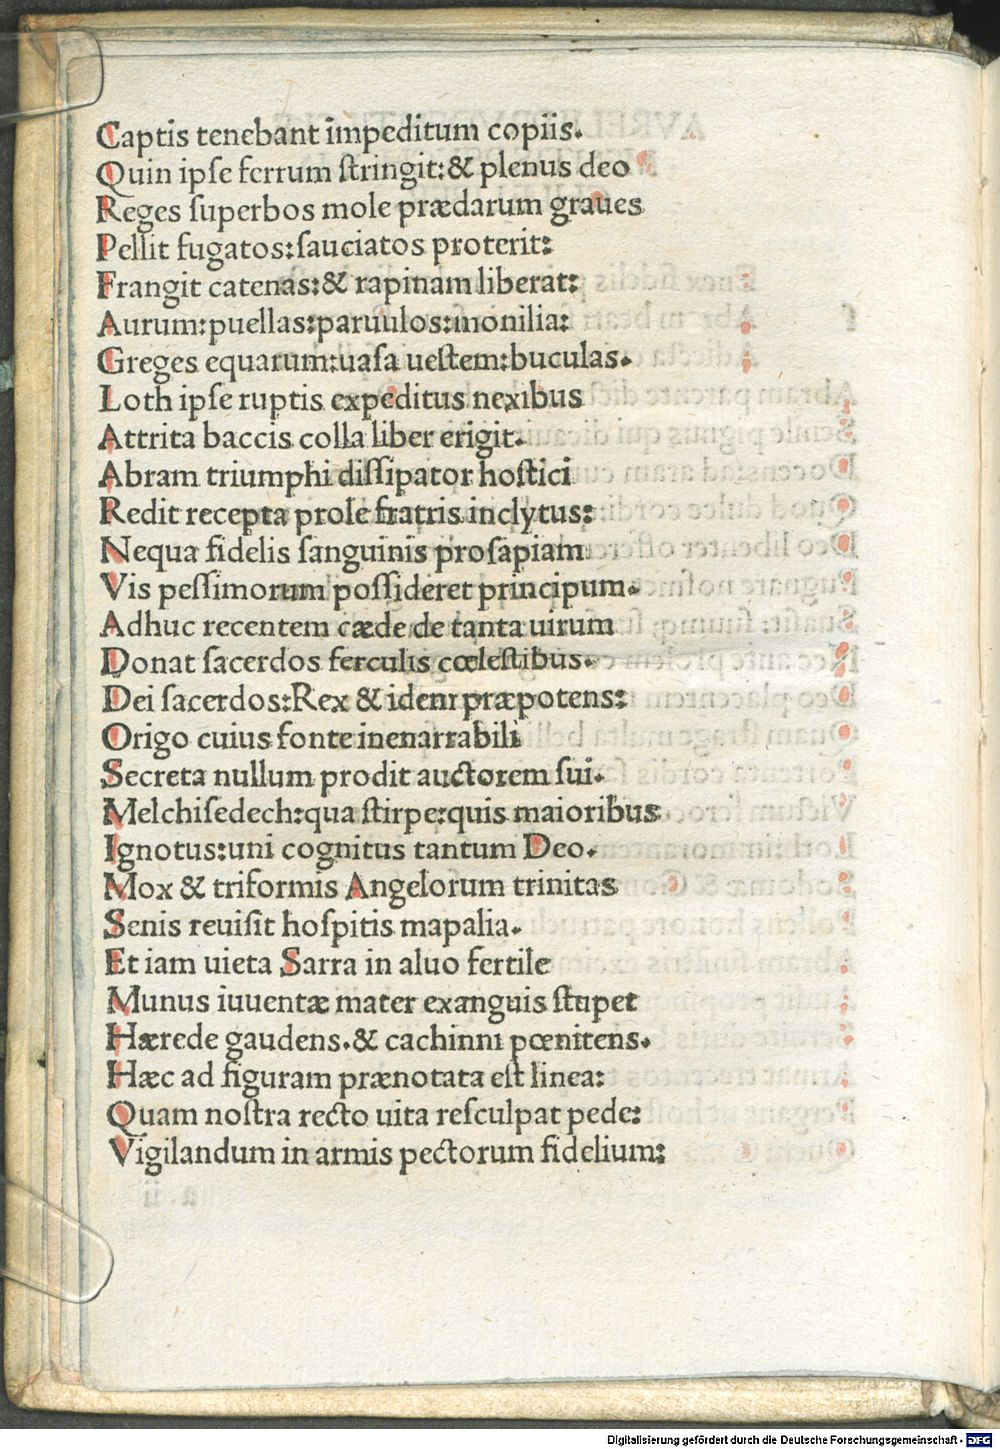 Captis tenebant impeditum copiis.
Quin ipſe ferrum ſtringit:& plenus deo
Reges ſuperbos mole prædarum graues
Pellit fugatos:ſauciatos proterit:
Frangit catenas:& rapinam liberat:
Aurum:puellas:paruulos:monilia:
Greges equarum:uaſa ueſtem:buculas.
Loth ipſe ruptis expeditus nexibus
Attrita baccis colla liber erigit.
Abram triumphi diſſipator hoſtici
Redit recepta prole fratris inclytus:
Nequa fidelis ſanguinis proſapiam
Vis peſſimorum poſſideret principum.
Adhuc recentem cæde de tanta uirum
Donat ſacerdos ferculis cœleſtibus.
Dei ſacerdos:Rex & idem præpotens:
Origo cuius fonte inenarrabili
Secreta nullum prodit auctorem ſui.
Melchiſedech:qua ſtirpe:quis maioribus
Ignotus:uni cognitus tantum Deo.
Mox & triformis Angelorum trinitas
Senis reuiſit hoſpitis mapalia.
Et iam uieta Sarra in aluo fertile
Munus iuuentæ mater exanguis ſtupet
Hærede gaudens.& cachinni pœnitens.
Hæc ad figuram prænotata eſt linea:
Quam noſtra recto uita reſculpat pede:
Vigilandum in armis pectorum fidelium:
Digitalisierung gefördert durch die Deutsche Forschungsgemeinschaft - DFG